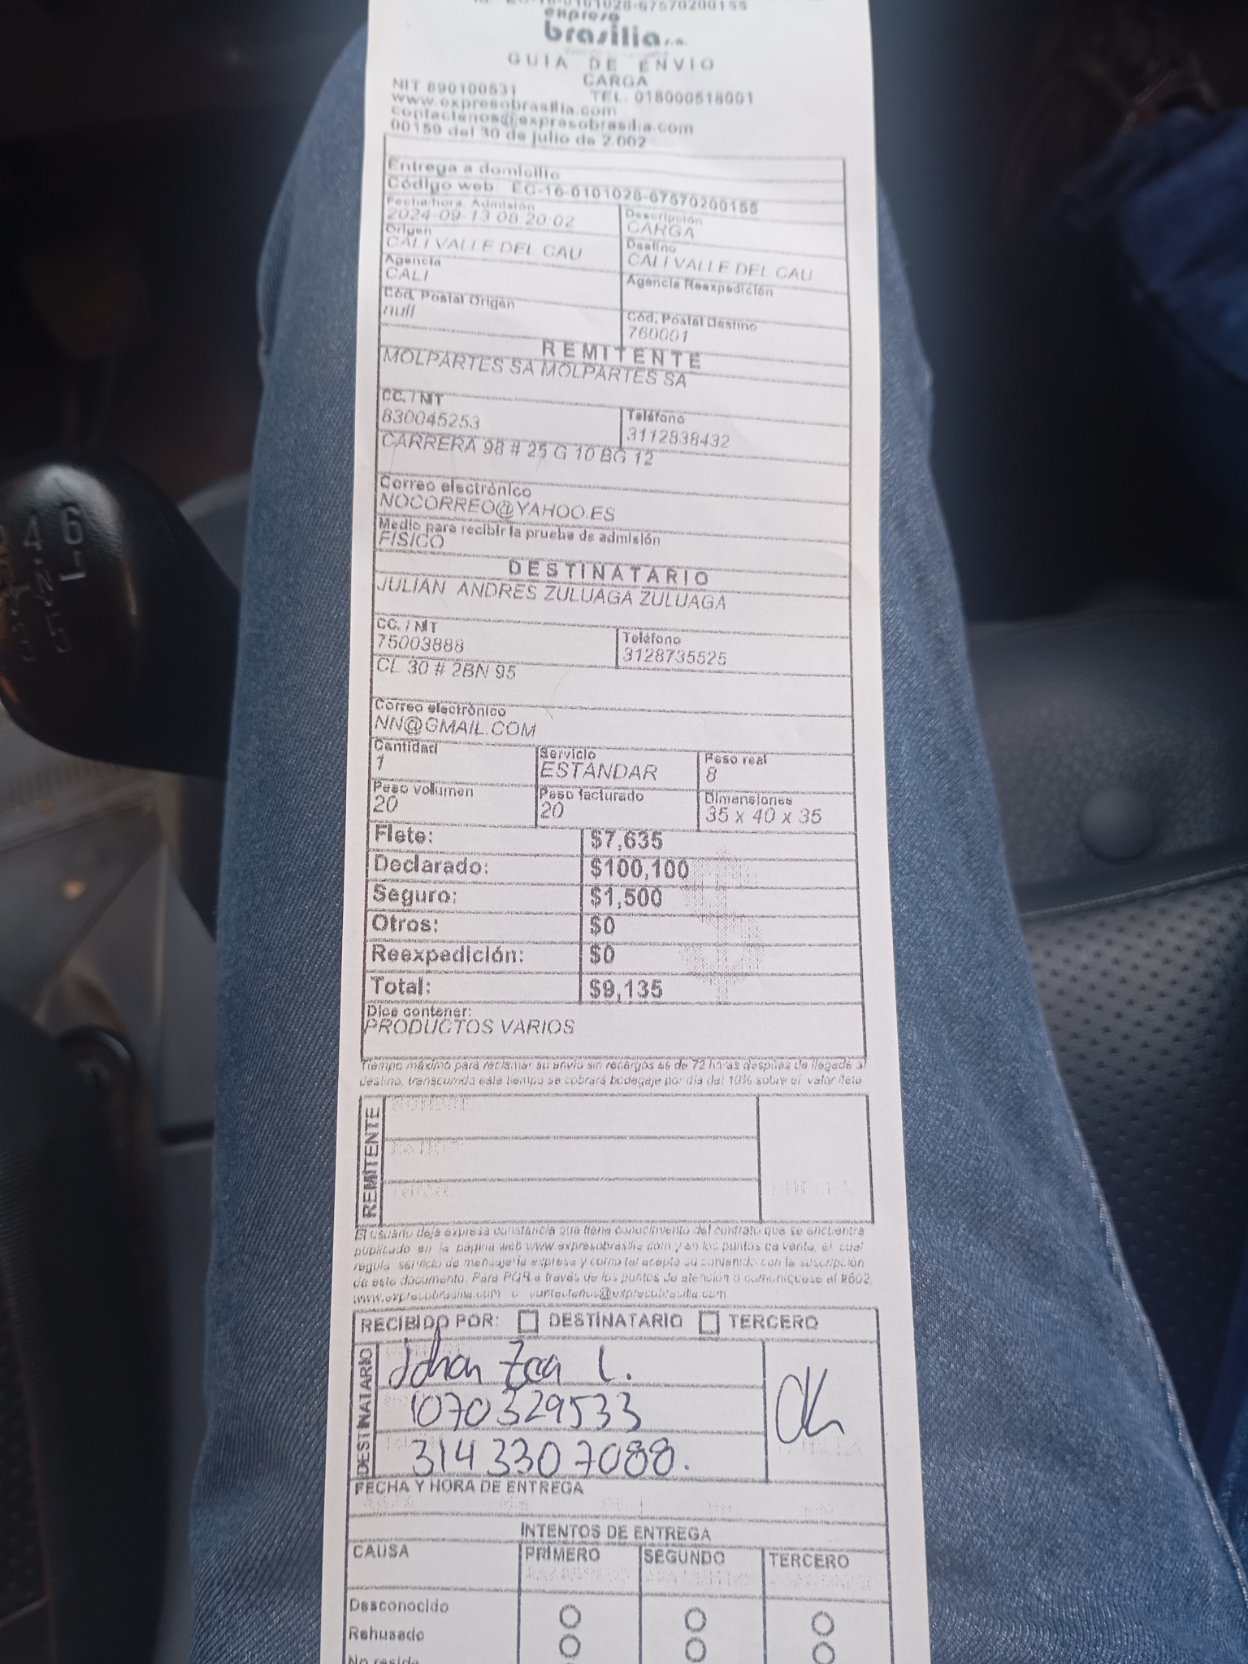 EC-16-0101028-67570200155
expreso
brasilia s.a.
GUIA DE ENVIO
CARGA
NIT 890100531 TEL. 018000518001
www.expresobrasilia.com
contactenos@expresobrasilia.com
00159 del 30 de julio de 2.002
Entrega a domicilio
Código web: EC-16-0101028-67570200155
Fecha/hora. Admisión Descripción
2024-09-13 08:20:02 CARGA
Origen Destino
CALI VALLE DEL CAU CALI VALLE DEL CAU
Agencia Agencia Reexpedición
CALI
Cód. Postal Origen Cód. Postal Destino
null 760001
REMITENTE
MOLPARTES SA MOLPARTES SA
CC. / NIT Teléfono
830045253 3112838432
CARRERA 98 # 25 G 10 BG 12
Correo electrónico
NOCORREO@YAHOO.ES
Medio para recibir la prueba de admisión
FISICO
DESTINATARIO
JULIAN ANDRES ZULUAGA ZULUAGA
CC. / NIT Teléfono
75003888 3128735525
CL 30 # 2BN 95
Correo electrónico
NN@GMAIL.COM
Cantidad Servicio Peso real
1 ESTANDAR 8
Peso volumen Peso facturado Dimensiones
20 20 35 x 40 x 35
Flete: $7,635
Declarado: $100,100
Seguro: $1,500
Otros: $0
Reexpedición: $0
Total: $9,135
Dice contener:
PRODUCTOS VARIOS
Tiempo máximo para reclamar su envío sin recargos es de 72 horas después de llegada a
destino, transcurrido este tiempo se cobrará bodegaje por día del 10% sobre el valor flete
REMITENTE
El usuario deja expresa constancia que tiene conocimiento del contrato que se encuentra
publicado en la pagina web www.expresobrasilia.com y en los puntos de venta, el cual
regula servicio de mensajería expresa y como tal acepta su contenido con la suscripción
de este documento. Para PQR a través de los puntos de atención o comuníquese al #602,
www.expresobrasilia.com o contactenos@expresobrasilia.com
RECIBIDO POR: DESTINATARIO TERCERO
DESTINATARIO
Johan L.
1070329533
314 330 7088.
FECHA Y HORA DE ENTREGA
INTENTOS DE ENTREGA
CAUSA PRIMERO SEGUNDO TERCERO
Desconocido
Rehusado
No reside
4 6
3 5